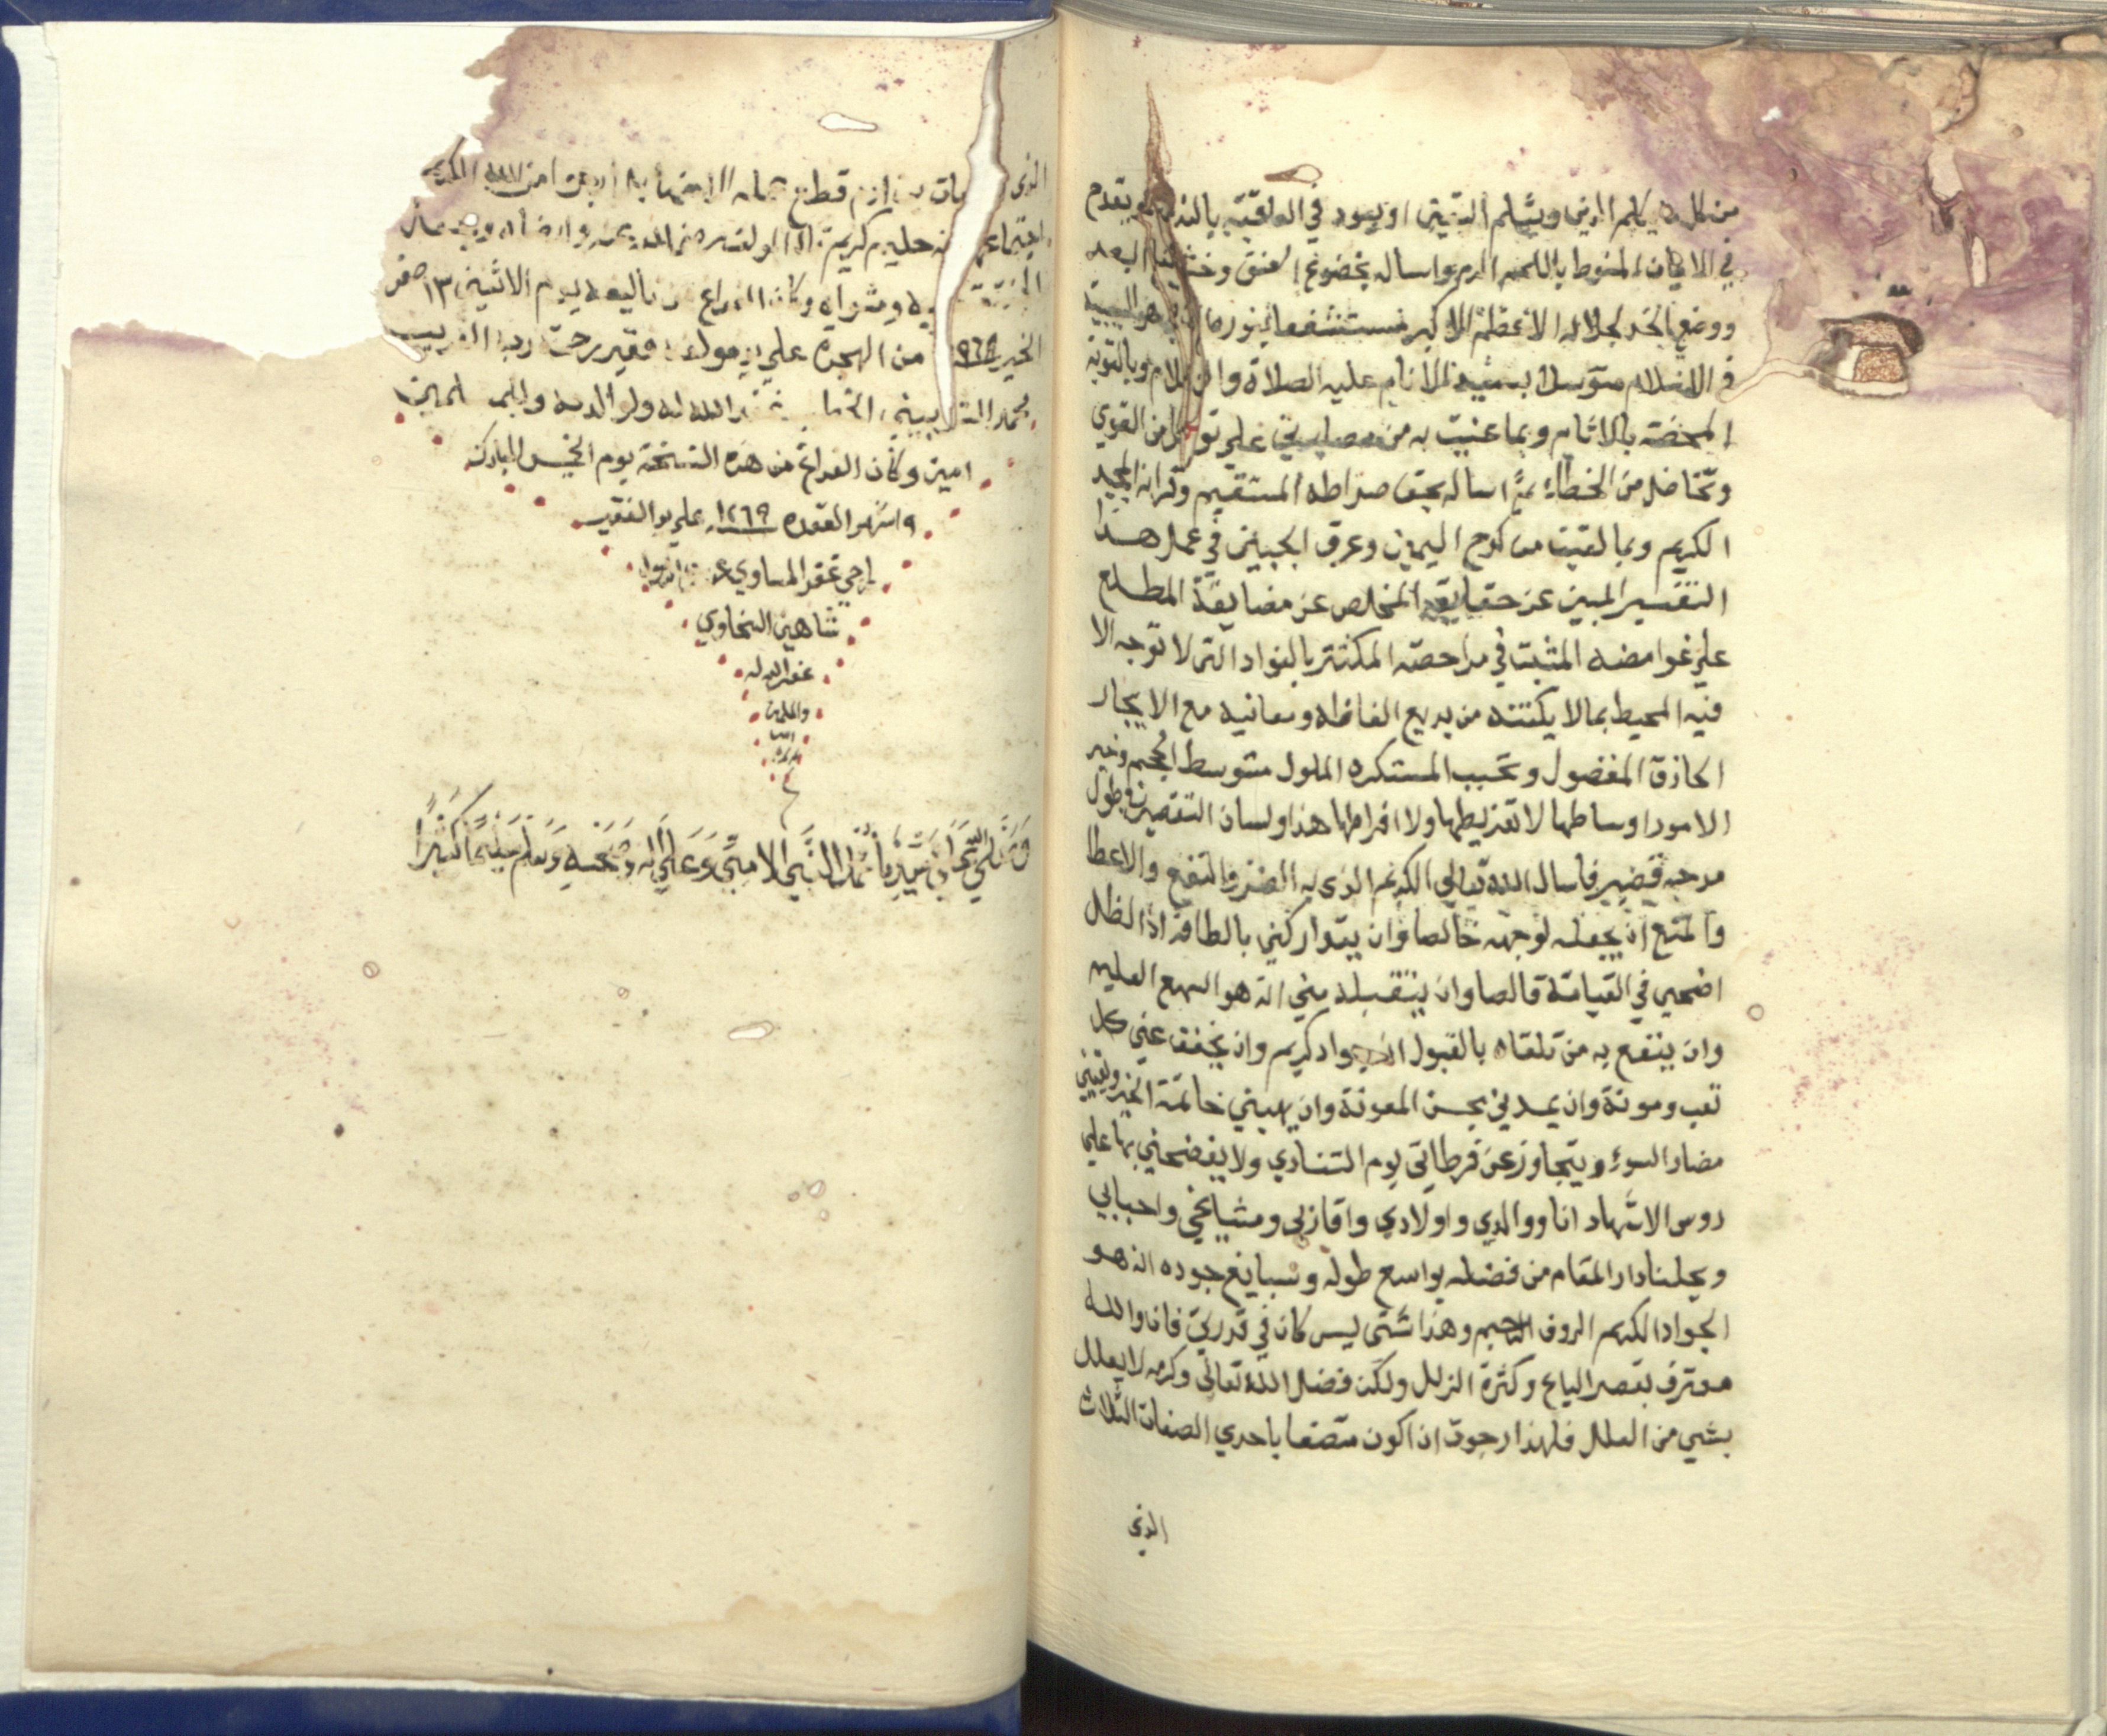 من كل ما يكلم الدين ويثلم اليقين او يعود في العاقبة بالندم يقدم
في الايمان المنوط باللحم والدم واساله بخضوع العنق وخشوع البصر
ووضع الخد لجلاله الاعظم الاكبر مستشفعا بنوره هو الشيبة
في الاسلام متوسلا بسيد الانام عليه الصلاة والسلام وبالتوبة
الممحضة بالاثام وبما عنيت به من علي من القوي
وتخاضل من الخطاء ثم اساله بحق صراطه المستقيم وقرانه المجيد
الكريم وبما لقيت من كدح اليمين وعرق الجبين في عمل هذا
التفسير المبين عن حقايقه المخلص عن مضايقة المطلع
علي غوامضه المثبت في مداحضه المكتنز بالفواد التي لا توجد الا
فيه المحيط بما لا يكتنه من بديع الفاظه ومعانيه مع الايجاز
الحاذق المفضول وتحبب المستكره الملول متوسط الحجم وخير
الامور اوساطها لا تفريطها ولا افراطها هذا ولسان التقصير في طول
مدحه قصير فاسال الله تعالي الكريم الذي به الضر والنفع والاعطا
والمنع ان يجعله لوجهه خالصا وان يتداركني بالطافه اذا الظل
اضحي في القيامة قالصا وان يتقبله مني انه هو السميع العليم
وان ينفع به من تلقاه بالقبول انه جواد كريم وان يخفف عني كل
تعب ومونة وان يمدني بحسن المعونة وان يهبني خاتمة الخير ويقيني
مضار السوء ويتجاوز عن فرطاتي يوم التنادي ولا يفضحني بها علي
روس الاشهاد انا ووالدي واولادي واقاربي ومشايخي واحبابي
ويحلنا دار المقام من فضله بواسع طوله وسبايغ جوده انه هو
الجواد الكريم الروف الرحيم وهذا شئ ليس كان في قدرتي فانا والله
معترف بقصر الباع وكثرة الزلل ولكن فضل الله تعالي وكرمه لا يعلل
بشي من العلل فلهذا رجوت ان اكون متصفا باحدي الصفات الثلاث
الذي
الذي ابن ادم قطع عمله الا
حليم كريم
وكان الفراغ من تاليفه يوم الاثنين ١٣ صفر
الخير ٩٦٨ من الهجرة علي يد مولفه فقير رحمة ربه القريب
محمد الشربيني الخطيب غفر الله له ولوالديه
امين وكان الفراغ من هذه النسخة يوم الخميس المبارك
٩ اشهر القعده ١٢٦٩ علي يد الفقير
راجي عفو المساوي
شاهين السخاوي
غفر الله له
والمسلمين
امين
وصلي الله علي سيدنا محمد النبي الامي وعلي اله وصحبه وسلم تسليما كثيرا